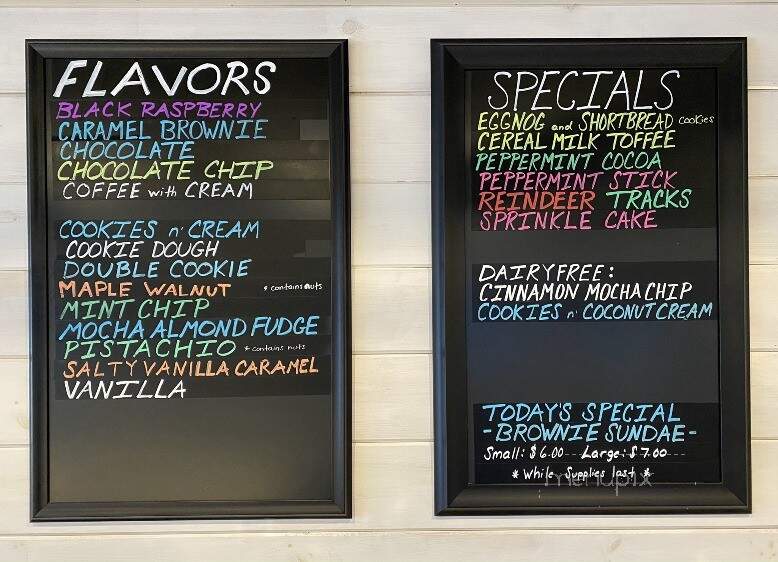 FLAVORS
BLACK RASPBERRY
CARAMEL BROWNIE
CHOCOLATE
CHOCOLATE CHIP
COFFEE with CREAM
COOKIES n' CREAM
COOKIE DOUGH
DOUBLE COOKIE
MAPLE WALNUT * contains nuts
MINT CHIP
MOCHA ALMOND FUDGE
PISTACHIO * contains nuts
SALTY VANILLA CARAMEL
VANILLA
SPECIALS
EGGNOG and SHORTBREAD cookies
CEREAL MILK TOFFEE
PEPPERMINT COCOA
PEPPERMINT STICK
REINDEER TRACKS
SPRINKLE CAKE
DAIRYFREE:
CINNAMON MOCHA CHIP
COOKIES n' COCONUT CREAM
TODAY'S SPECIAL
-BROWNIE SUNDAE-
Small: $6.00--- Large: $7.00---
* While Supplies last *
menupix